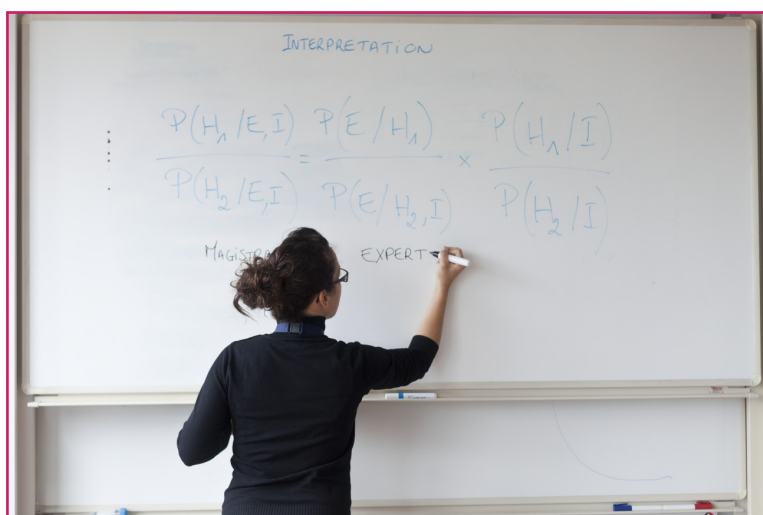 INTERPRETATION
P(H₁/E,I) / P(H₂/E,I) = P(E/H₁) / P(E/H₂,I) × P(H₁/I) / P(H₂/I)
EXPERT